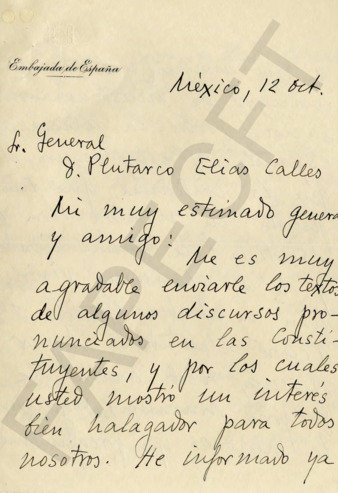 Embajada de España
México, 12 oct.
Sr. General
D. Plutarco Elias Calles
Mi muy estimado general
y amigo: Me es muy
agradable enviarle los textos
de algunos discursos pro-
nunciados en las Consti-
tuyentes, y por los cuales
usted mostró un interés
bien halagador para todos
nosotros. He informado ya
FAPECFT